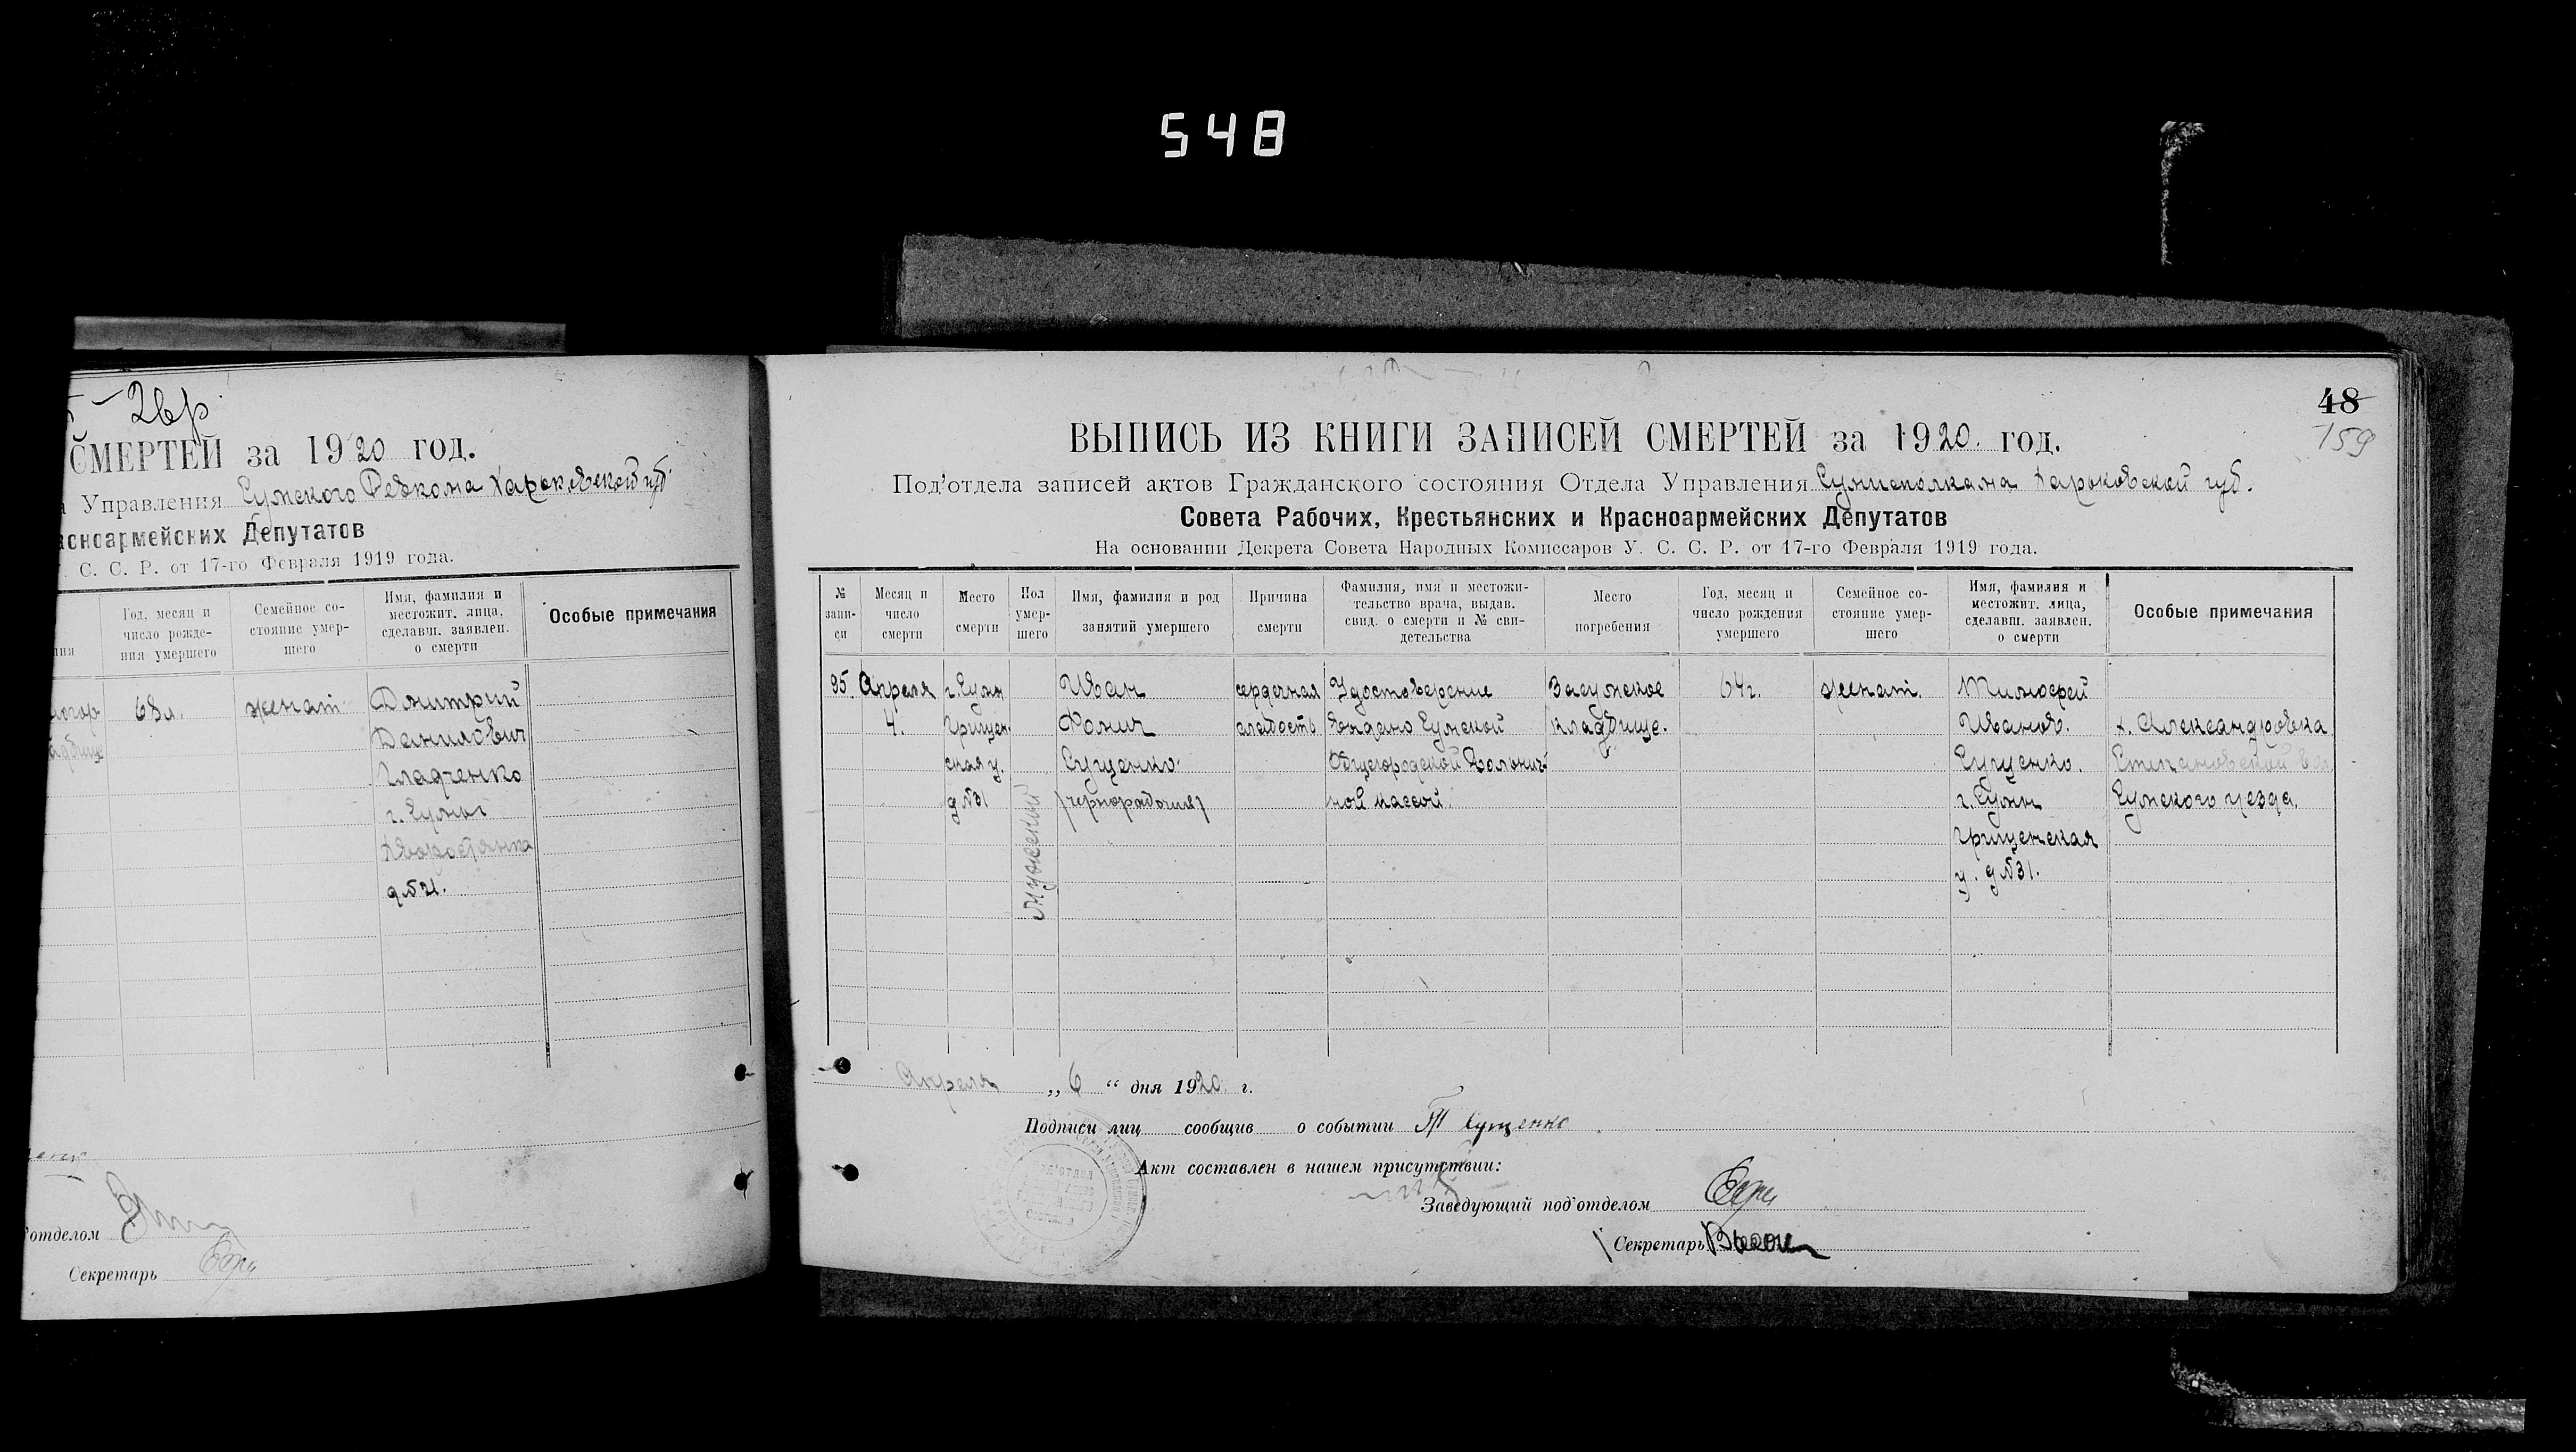 548
2 вр.
СМЕРТЕЙ за 1920 год.
Управления Сумского Ревкома Харьковской губ.
асноармейских Депутатов
С. С. Р. от 17-го Февраля 1919 года.
Год, месяц и
число рожде-
ния умершего
Семейное со-
стояние умер-
шего
Имя, фамилия и
местожит. лица,
сделавш. заявлен.
о смерти
Особые примечания
68 л.
женат
Дмитрий
Данилович
Гладченко
г. Сумы
д № 21.
отделом
Секретарь
48
159
ВЫПИСЬ ИЗ КНИГИ ЗАПИСЕЙ СМЕРТЕЙ за 1920 год.
Под'отдела записей актов Гражданского состояния Отдела Управления Сумисполкома Харьковской губ.
Совета Рабочих, Крестьянских и Красноармейских Депутатов
На основании Декрета Совета Народных Комиссаров У. С. С. Р. от 17-го Февраля 1919 года.
№
запи-
си
Месяц и
число
смерти
Место
смерти
Пол
умер-
шего
Имя, фамилия и род
занятий умершего
Причина
смерти
Фамилия, имя и местожи-
тельство врача, выдав.
свид. о смерти и № сви-
детельства
Место
погребения
Год, месяц и
число рождения
умершего
Семейное со-
стояние умер-
шего
Имя, фамилия и
местожит. лица,
сделавш. заявлен.
о смерти
Особые примечания
95.
Апреля
4.
г. Сумы
Грищен-
ская у.
д № 31
мужеский
Иван
Фомич
Сущенко
(чернорабочий)
сердечная
слабость
Удостоверение
выдано Сумской
Общегородской Больнич-
ной кассой.
Засумское
кладбище.
64 г.
женат.
Тимофей
Иванов.
Сущенко.
г. Сумы
Грищенская
у. д № 31.
х. Александровка
Степановской вол
Сумского уезда.
Апреля „ 6 “ дня 1920 г.
Подписи лиц сообщив о событии Т Сущенко
Акт составлен в нашем присутствии:
Заведующий под'отделом
Секретарь